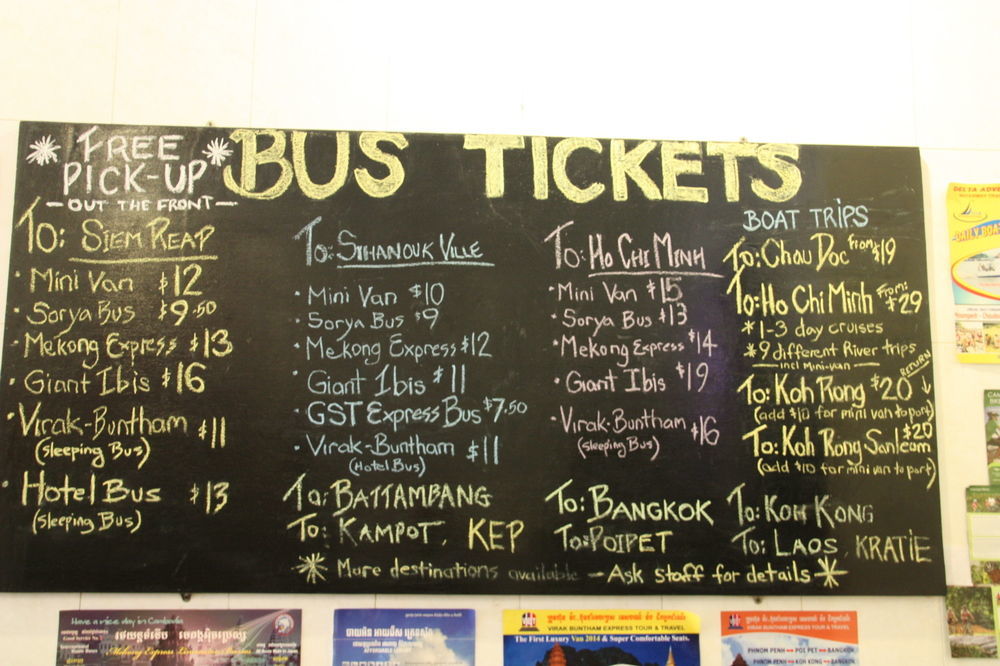 FREE
PICK-UP
OUT THE FRONT
BUS TICKETS
To: SIEM REAP
Mini Van $12
Sorya Bus $9.50
Mekong Express $13
Giant Ibis $16
Virak-Buntham $11
(Sleeping Bus)
Hotel Bus $13
(Sleeping Bus)
To: SIHANOUK VILLE
Mini Van $10
Sorya Bus $9
Mekong Express $12
Giant Ibis $11
GST Express Bus $7.50
Virak-Buntham $11
(Hotel Bus)
To: BATTAMBANG
To: KAMPOT, KEP
To: HO CHI MINH
Mini Van $15
Sorya Bus $13
Mekong Express $14
Giant Ibis $19
Virak-Buntham $16
(Sleeping Bus)
To: BANGKOK
To: POIPET
BOAT TRIPS
To: Chau Doc from $19
To: Ho Chi Minh From: $29
* 1-3 day cruises
* 9 different River trips
incl Mini-van
RETURN
To: Koh Rong $20
(add $10 for mini van to port)
To: Koh Rong Sanleom $20
(add $10 for mini van to port)
To: KOH KONG
To: LAOS, KRATIE
* More destinations available - ASK staff for details *
DELTA ADVE
DAILY BOA
Have a nice day in Cambodia
VIRAK BUNTHAM EXPRESS TOUR & TRAVEL
The First Luxury Van 2014 & Super Comfortable Seats.
VIRAK BUNTHAM EXPRESS TOUR & TRAVEL
PHNOM PENH POI PET BANGKOK
PHNOM PENH KOH KONG BANGKOK